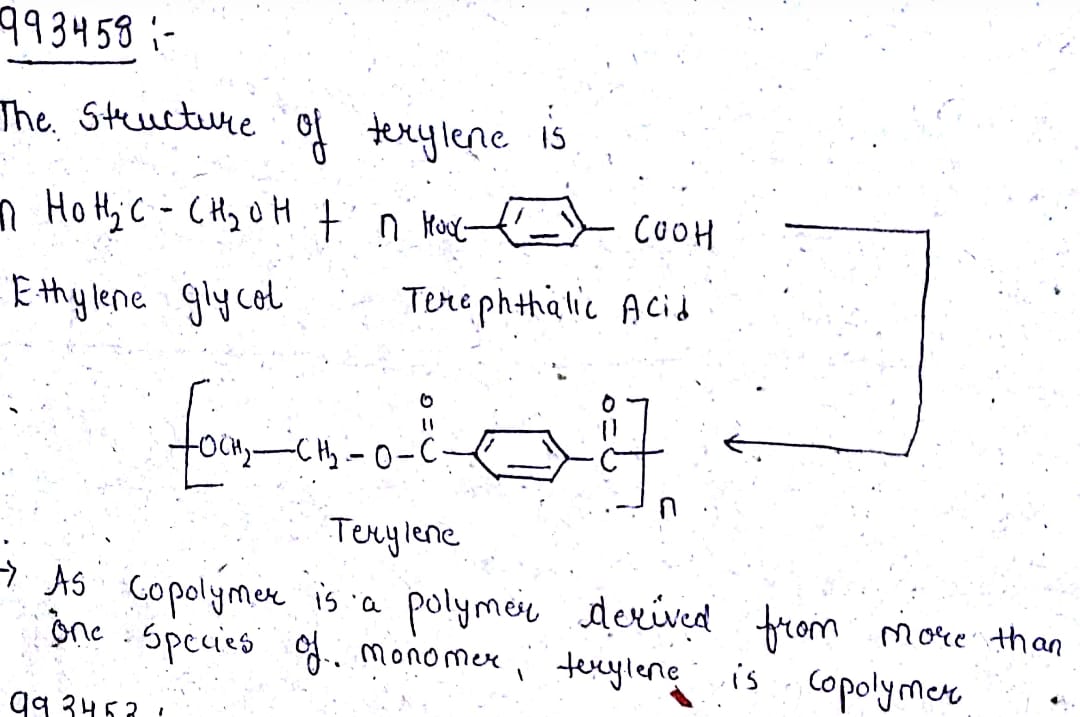 993458 :-
The structure of terylene is
n HOH₂C - CH₂OH + n HOOC- -COOH
Ethylene glycol Terephthalic Acid
[-OCH₂-CH₂-O-C(=O)- -C(=O)-]n
Terylene
→ As copolymer is a polymer derived from more than
one species of monomer, terylene is copolymer
993453